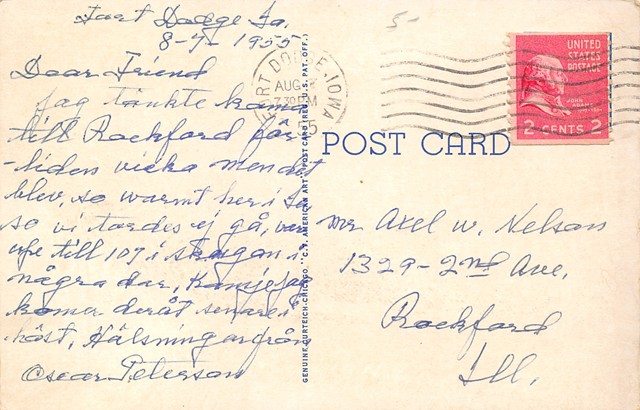 Fort Dodge Ia.
8-7-1955
Dear Friend
jag tänkte komma
till Rockford för
-liden vicka men det
blev, so warmt her i Ia
so vi tordes ej gå, var
upe till 107 i skugan i
några dar, Kanjse jag
komer deråt senare i
höst, Hälsningar från
Oscar Peterson
5-
FORT DODGE, IOWA
AUG
7 30 PM
UNITED
STATES
POSTAGE
JOHN
ADAMS
2 CENTS 2
POST CARD
GENUINE CURTEICH-CHICAGO "C.T. AMERICAN ART" POST CARD (REG. U.S. PAT. OFF.)
Mr Axel W. Nelson
1329-2nd Ave.
Rockford
Ill.